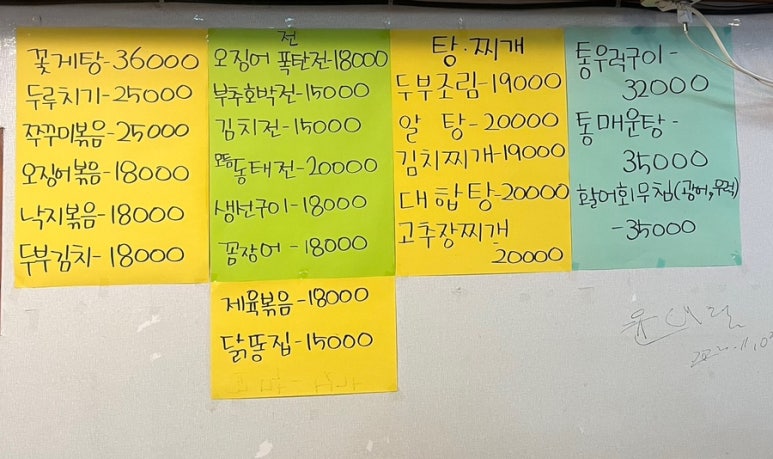 꽃게탕-36000
두루치기-25000
쭈꾸미볶음-25000
오징어볶음-18000
낙지볶음-18000
두부김치-18000
전
오징어 폭탄전-18000
부추호박전-15000
김치전-15000
모듬동태전-20000
생선구이-18000
꼼장어-18000
제육볶음-18000
닭똥집-15000
탕·찌개
두부조림-19000
알 탕-20000
김치찌개-19000
대합탕-20000
고추장찌개
20000
통우럭구이-
32000
통매운탕-
35000
활어회무침(광어,우럭)
-35000